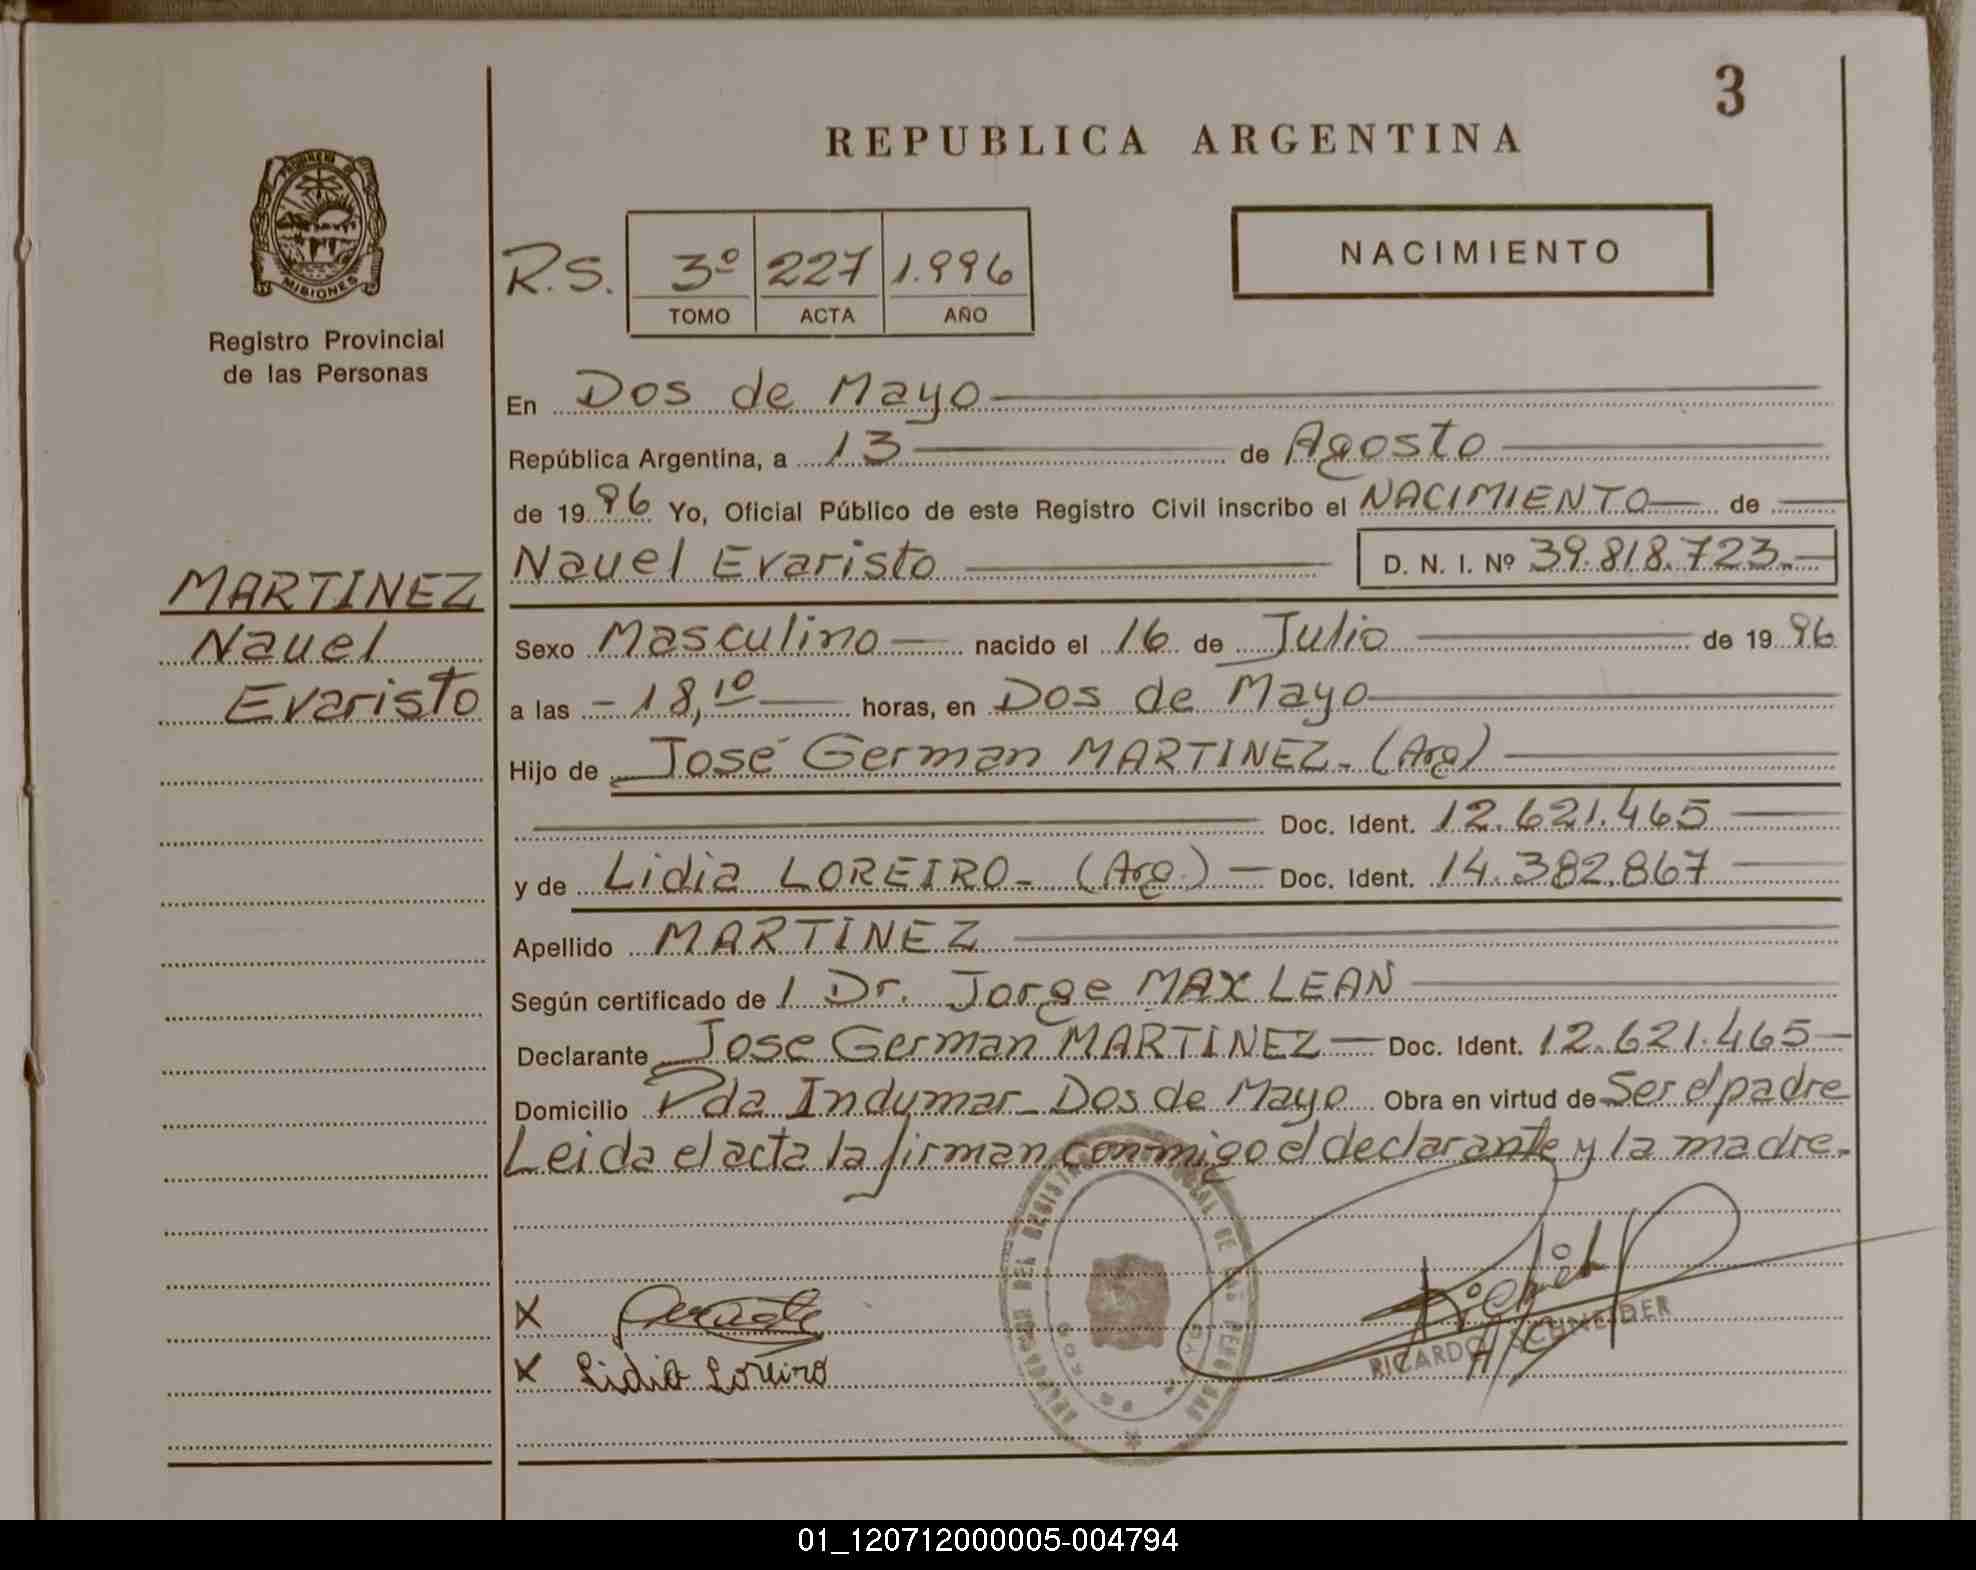 3
REPUBLICA ARGENTINA
PROVINCIA DE
MISIONES
Registro Provincial
de las Personas
NACIMIENTO
R.S. 3º 227 1.996
TOMO ACTA AÑO
En Dos de Mayo
República Argentina, a 13 de Agosto
de 1996 Yo, Oficial Público de este Registro Civil inscribo el NACIMIENTO de
Nauel Evaristo D. N. I. Nº 39.818.723.
MARTINEZ
Nauel
Evaristo
Sexo Masculino nacido el 16 de Julio de 1996
a las 18,10 horas, en Dos de Mayo
Hijo de José German MARTINEZ. (Arg)
Doc. Ident. 12.621.465
y de Lidia LOREIRO. (Arg.) Doc. Ident. 14.382.867
Apellido MARTINEZ
Según certificado de 1 Dr. Jorge MAX LEAN
Declarante Jose German MARTINEZ Doc. Ident. 12.621.465
Domicilio Pda Indumar. Dos de Mayo Obra en virtud de Ser el padre
Leida el acta la firman conmigo el declarante y la madre.
X
X Lidia Loreiro
RICARDO SCHNEIDER
01_120712000005-004794